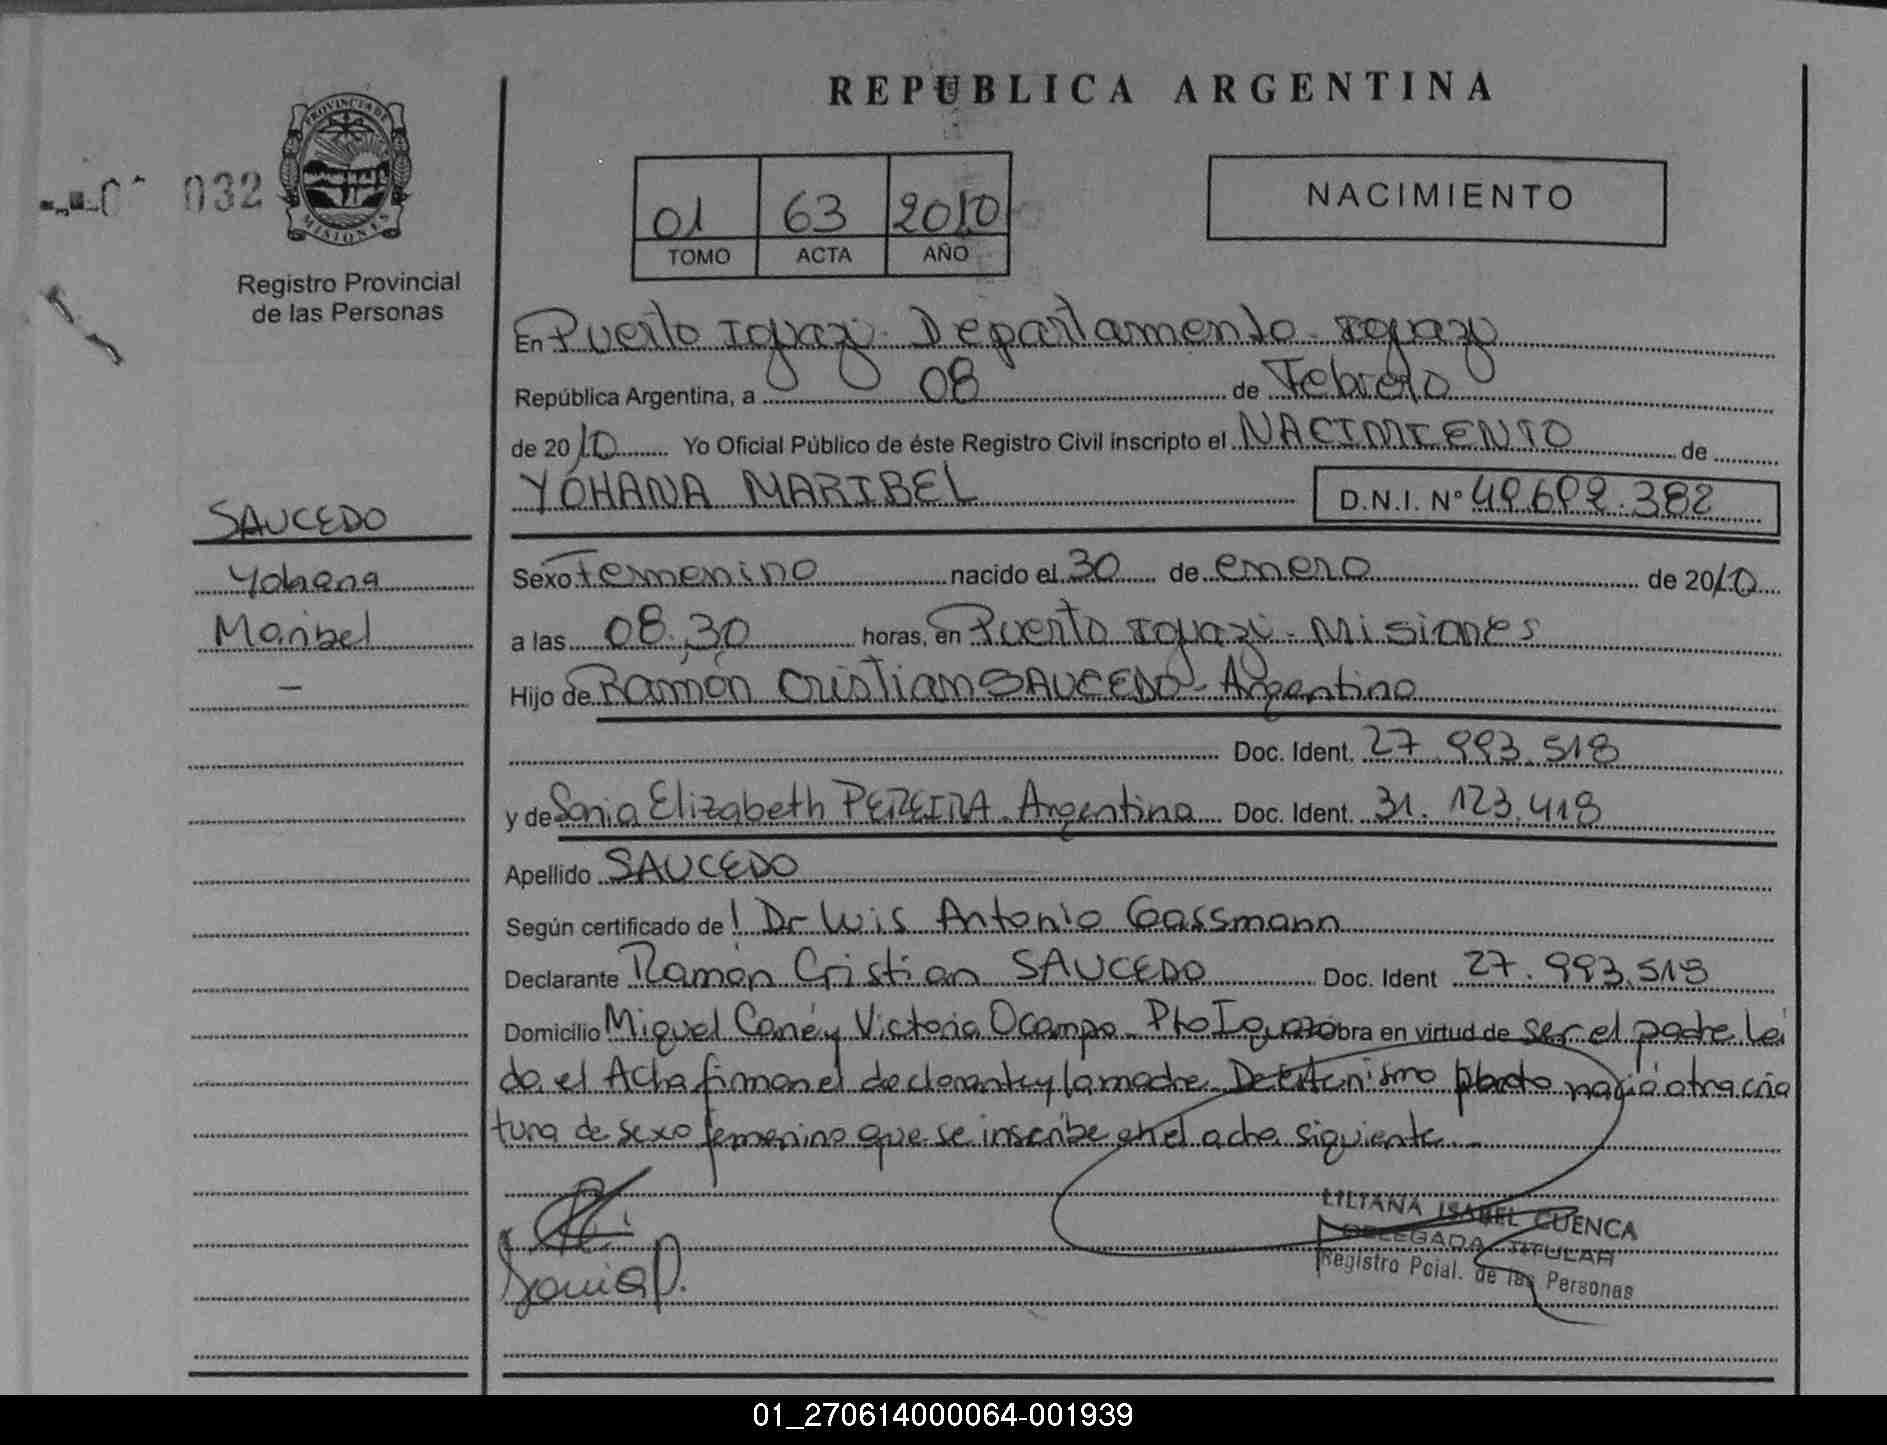 REPUBLICA ARGENTINA
PROVINCIA DE
MISIONES
032
Registro Provincial
de las Personas
01 63 2010
TOMO ACTA AÑO
NACIMIENTO
En Puerto Iguazú. Departamento Iguazú
República Argentina, a 08 de Febrero
de 2010 Yo Oficial Público de éste Registro Civil inscripto el NACIMIENTO de
YOHANA MARIBEL D.N.I. Nº 49.692.382
SAUCEDO
Yohana
Maribel
Sexo Femenino nacido el 30 de enero de 2010
a las 08:30 horas, en Puerto Iguazú - Misiones
Hijo de Ramón Cristian SAUCEDO - Argentino
Doc. Ident. 27.993.518
y de Sonia Elizabeth PEREIRA. Argentina Doc. Ident. 31.123.418
Apellido SAUCEDO
Según certificado de Dr Luis Antonio Gassmann
Declarante Ramón Cristian SAUCEDO Doc. Ident 27.993.518
Domicilio Miguel Cané y Victoria Ocampo - Pto Iguazú obra en virtud de ser el padre lei
da el Acta firman el declarante y la madre. De este mismo parto nació otra cria
tura de sexo femenino que se inscribe en el acta siguiente
Sonia P.
LILIANA ISABEL CUENCA
DELEGADA TITULAR
Registro Pcial. de las Personas
01_270614000064-001939